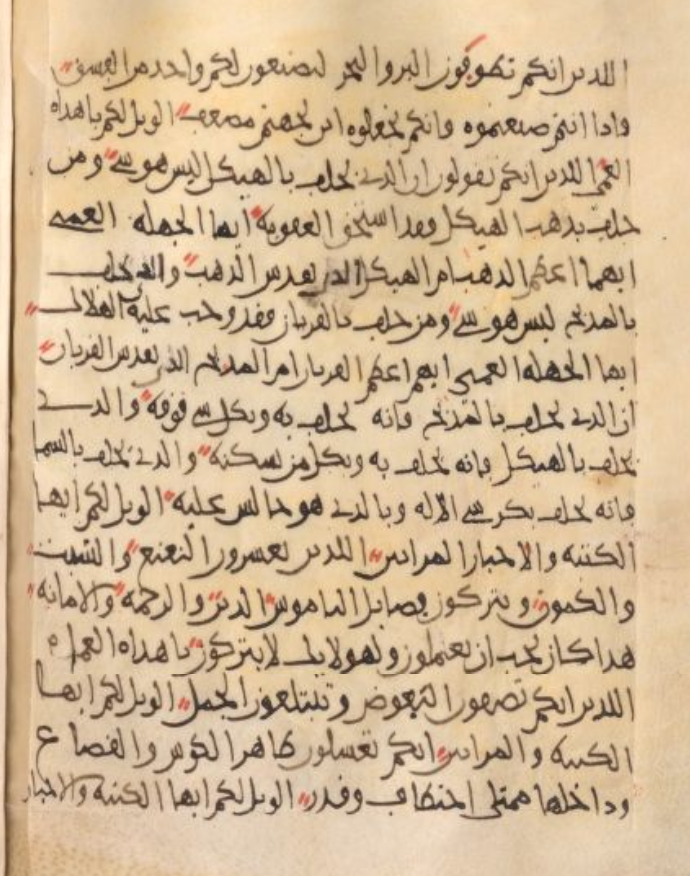 اللدين انكم تطوفون البر والبحر لتصنعون لكم واحد من العسق
واذا انتم صنعتموه وانكم تجعلوه ابن لجهنم مضعف الويل لكم يا هداه
العمي اللدين انكم تقولون ان الدي يحلف بالهيكل ليس هو سي ومن
حلف بدهب الهيكل فقد استحق العقوبة ايها الجهله العمي
ايهما اعظم الدهب ام الهيكل الدي يقدس الدهب والدي يحلف
بالمدبح ليس هو سي ومن حلف بالقربان فقد وجب عليه
ايها الجهله العمي ايهم اعظم القربان ام المدبح الدي يقدس القربان
ان الدي يحلف بالمدبح فانه يحلف به وبكل سي فوقه والدي
يحلف بالهيكل فانه يحلف به وبكل من يسكنه والدي يحلف بالسما
فانه يحلف بكرسي الاله وبالدي هو جالس عليه الويل لكم ايها
الكتبه والاحبار المرايين اللدين تعسرون النعنع والشبت
والكمون وتتركون فصايل الناموس الدين والرحمه والامانه
هدا كان يجب ان تعتملون ولهولايك لا تتركون يا هداه العما
اللدين انكم تصفون البعوض وتبتلعون الجمل الويل لكم ايها
الكتبه والمرايين انكم تغسلون ظاهر الكوس والقصاع
وداخلها ممتلي اختطاف وقدر الويل لكم ايها الكتبه والاحبار